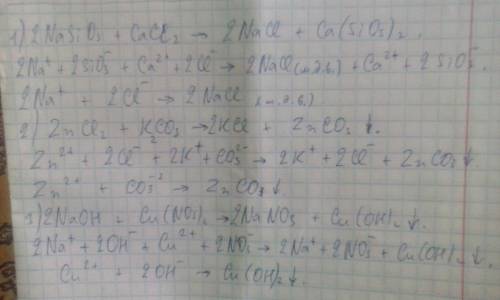 1) 2NaSiO₃ + CaCl₂ → 2NaCl + Ca(SiO₃)₂.
2Na⁺ + 2SiO₃⁻ + Ca²⁺ + 2Cl⁻ → 2NaCl(м.д.в.) + Ca²⁺ + 2SiO₃⁻.
2Na⁺ + 2Cl⁻ → 2NaCl (м.д.в.)
2) ZnCl₂ + K₂CO₃ → 2KCl + ZnCO₃↓.
Zn²⁺ + 2Cl⁻ + 2K⁺ + CO₃²⁻ → 2K⁺ + 2Cl⁻ + ZnCO₃↓.
Zn²⁺ + CO₃⁻² → ZnCO₃↓
3) 2NaOH + Cu(NO₃)₂ → 2NaNO₃ + Cu(OH)₂↓.
2Na⁺ + 2OH⁻ + Cu²⁺ + 2NO₃⁻ → 2Na⁺ + 2NO₃⁻ + Cu(OH)₂↓.
Cu²⁺ + 2OH⁻ → Cu(OH)₂↓.